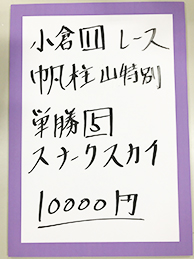 小倉11レース
帆柱山特別
単勝5
スナークスカイ
10000円